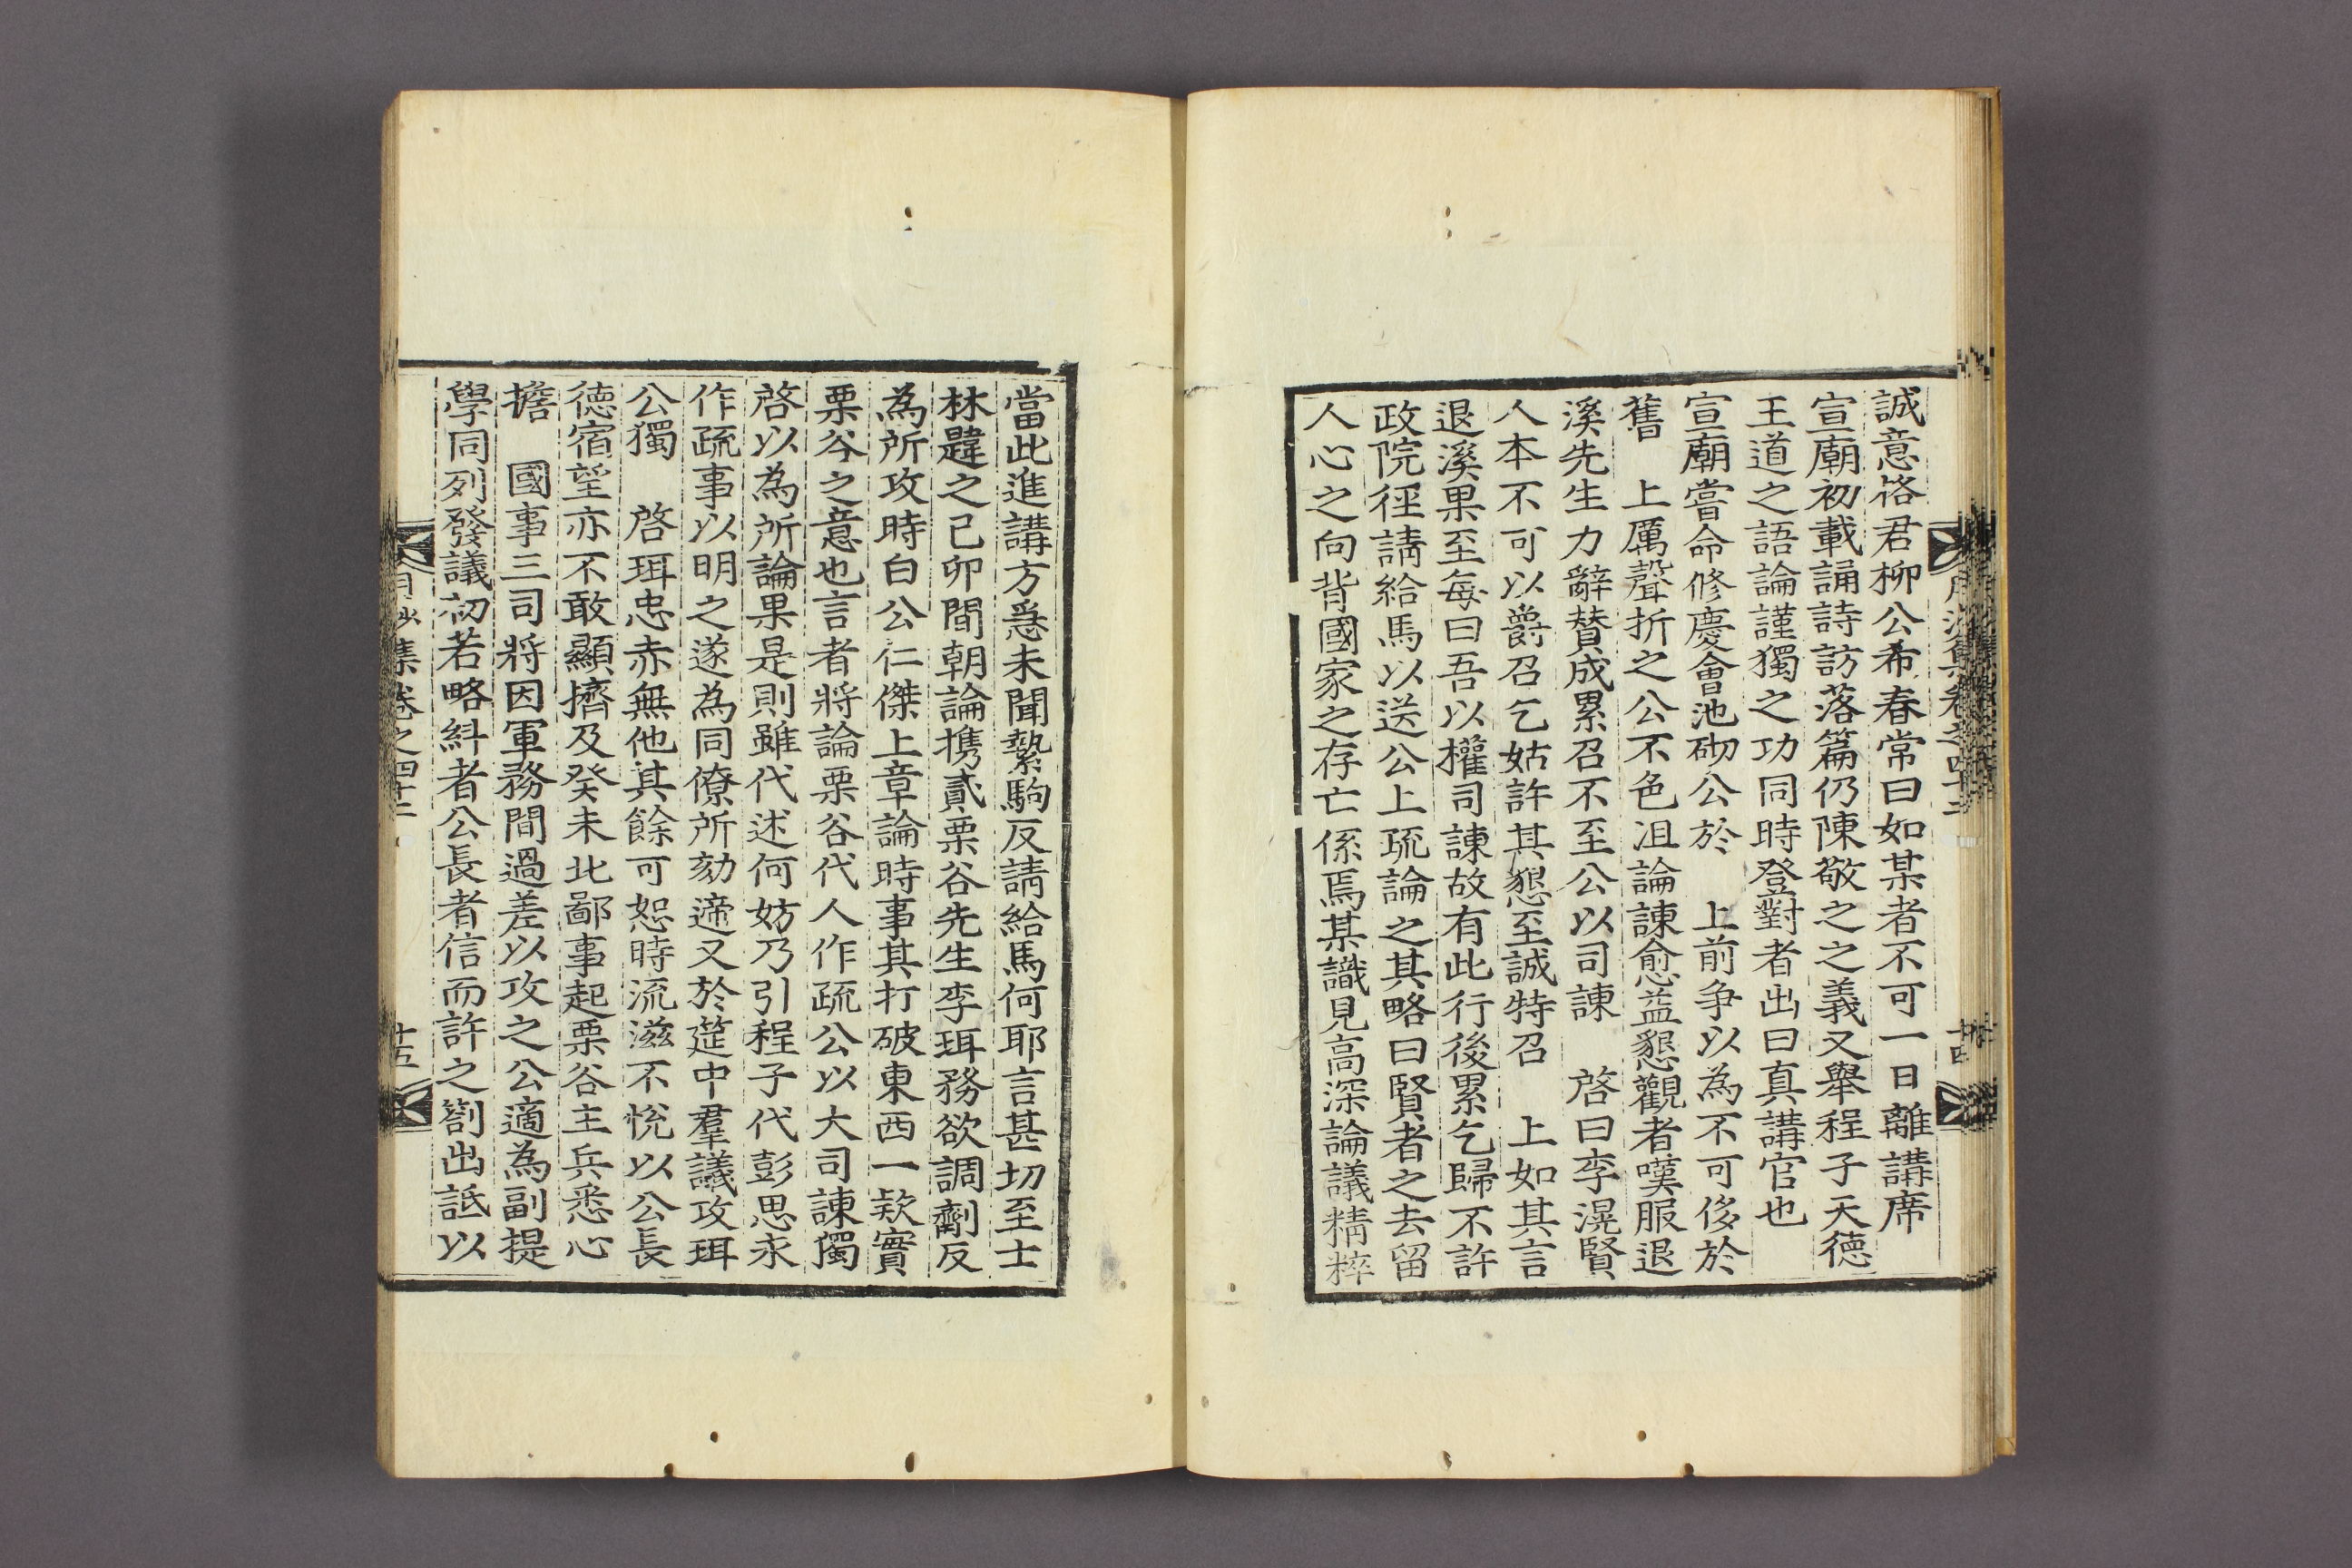 誠意格君柳公希春常曰如某者不可一日離講席
宣廟初載誦詩訪落篇仍陳敬之之義又舉程子天德
王道之語論謹獨之功同時登對者出曰真講官也
宣廟嘗命修慶會池砌公於 上前爭以為不可侈於
舊 上厲聲折之公不色沮論諫愈益懇觀者嘆服退
溪先生力辭賛成累召不至公以司諫 啓曰李滉賢
人本不可以爵召乞姑許其懇至誠特召 上如其言
退溪果至每曰吾以權司諫故有此行後累乞歸不許
政院徑請給馬以送公上疏論之其略曰賢者之去留
人心之向背國家之存亡係焉某識見高深論議精粹
當此進講方急未聞縶駒反請給馬何耶言甚切至士
林韙之己卯間朝論携貳栗谷先生李珥務欲調劑反
為所攻時白公仁傑上章論時事其打破東西一款實
栗谷之意也言者將論栗谷代人作疏公以大司諫獨
啓以為所論果是則雖代述何妨乃引程子代彭思永
作疏事以明之遂為同僚所劾遞又於筵中羣議攻珥
公獨 啓珥忠赤無他其餘可恕時流滋不悅以公長
德宿望亦不敢顯擠及癸未北鄙事起栗谷主兵悉心
擔 國事三司將因軍務間過差以攻之公適為副提
學同列發議初若略糾者公長者信而許之劄出詆以
集卷之四十二
十五